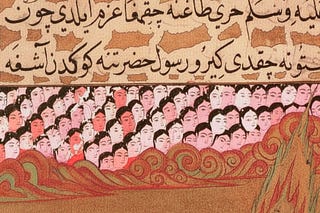 عليه وسلم حرى طاغنه چقمغا عزم ايلدى چون
ستونه چقدى كيرو رسول حضرتنه كوكدن آشغه